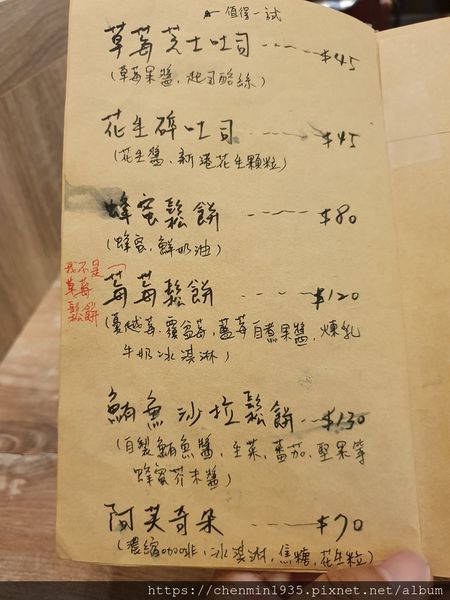 值得一試
草莓芝士吐司 $45
(草莓果醬, 起司酪絲)
花生碎吐司 $45
(花生醬, 新港花生顆粒)
蜂蜜鬆餅 $80
(蜂蜜, 鮮奶油)
我不是
草莓
鬆餅
莓莓鬆餅 $120
(蔓越莓, 覆盆莓, 藍莓自煮果醬, 煉乳
牛奶冰淇淋)
鮪魚沙拉鬆餅 $130
(自製鮪魚醬, 生菜, 蕃茄, 堅果等
蜂蜜芥末醬)
阿芙奇朵 $70
(濃縮咖啡, 冰淇淋, 焦糖, 花生粒)
https://chenmin1935.pixnet.net/album